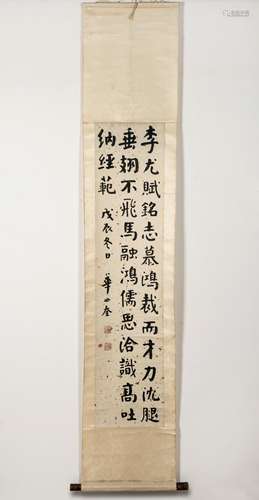 李尤賦銘志慕鴻裁而才力沈膇
垂翅不飛馬融鴻儒思洽識高吐
納經範
戊辰冬日 華世奎